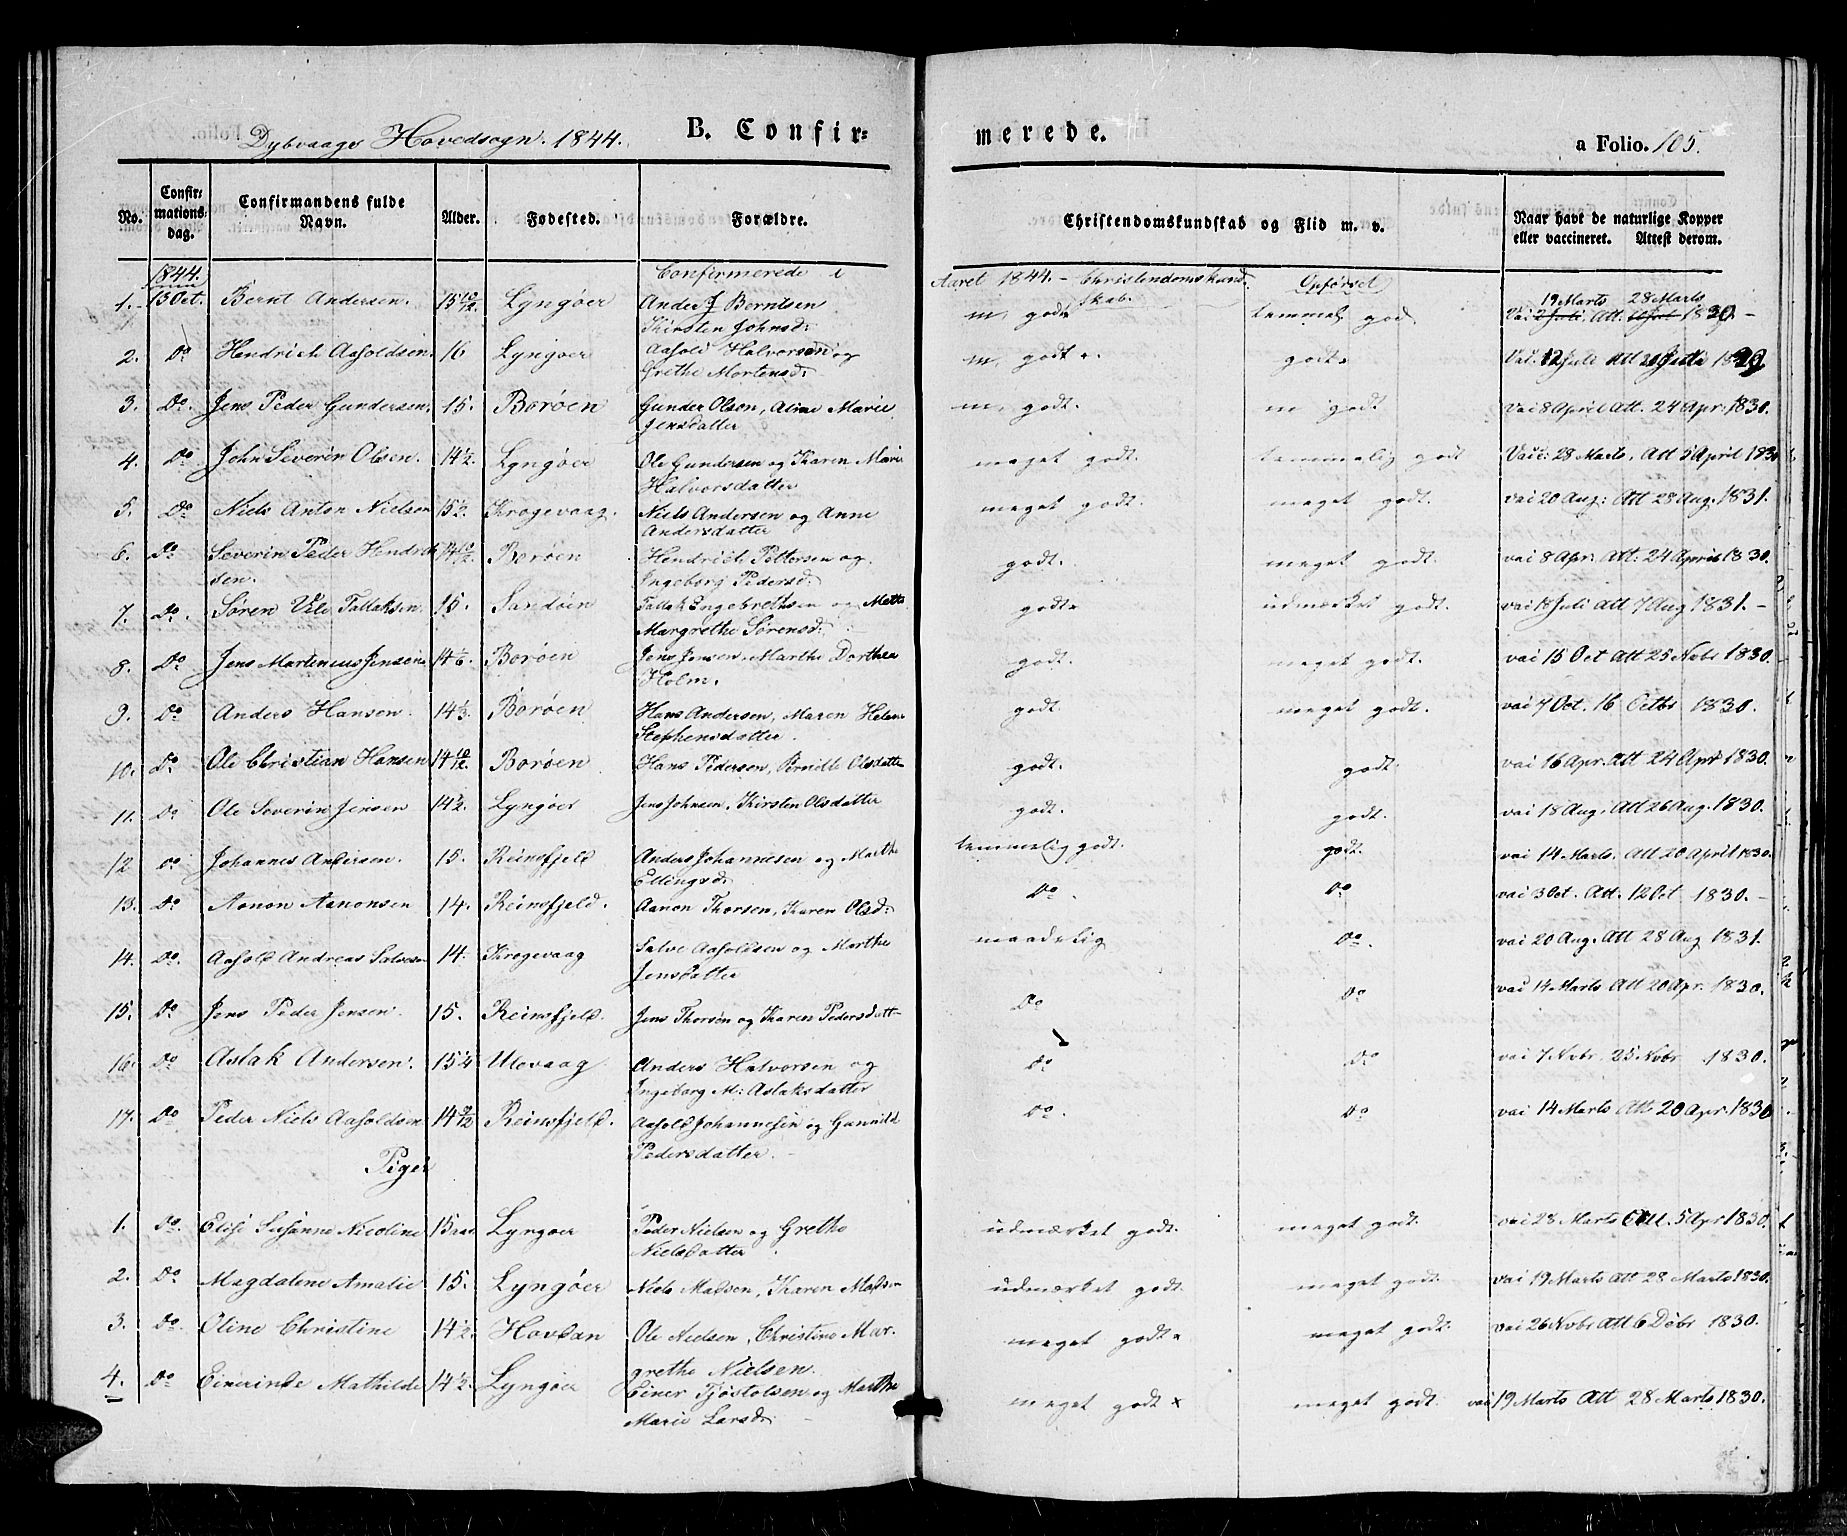 Dybvaags Hovedsogn. 1844. B. Confir=
merede. a Folio. 105.
No. Confir=mations=dag. Confirmandens fulde Navn. Alder. Fødested. Forældre. Christendomskundskab og Flid m. v. Naar havt de naturlige Kopper eller vaccineret. Attest derom.
1844. Confirmerede i Aaret 1844. - Christendomskundskab. Opførsel
1. 13 Oct. Bernt Andersen. 15 10/12. Lyngøer Anders Berntsen m, godt temmel god 19 Marts 28 Marts
Kirsten Johnsd: Vai 2 Juli. Att. 1830. -
2. Do Hendrich Aasoldsen 16 Lyngøer Aasold Halvorsen og m, godt. godt. Vai. 12 Juli Att 20 Juli 1829
Grethe Mortensd:
3. Do. Jens Peder Gundersen, 15. Borøen Gunder Olsen, Aline Marie m, godt. m godt vai 8 April Att. 24 Apr: 1830.
Jensdatter
4. Do John Severin Olsen. 14 1/2. Lyngøer Ole Gundersen og Karen Marie meget godt. temmelig godt Vai: 28 Marts, Att 5 April 1830
Halvorsdatter
5. Do Niels Anton Nielsen 15 1/2. Krogevaag. Niels Andersen og Anne meget godt. meget godt. vai 20 Aug: Att 28 Aug. 1831.
Andersdatter
6. Do Severin Peder Hendrich 14 10/12. Borøen Hendrich Pettersen og godt. meget godt. vai 8 Apr: Att: 24 April 1830.
sen. Ingeborg Pedersd:
7. Do. Søren Ule Tallaksen. 15. Sandøen Tallak Engebrethsen og Mette godt. udmærket godt. vai 18 Juli Att 7 Aug 1831. -
Margrethe Sørensd:
8. Do Jens Martinius Jensen 14 1/6. Borøen Jens Jensen, Marthe Dorthea godt. meget godt. vai 15 Oct Att 25 Nobr 1830.
Holm.
9. Do Anders Hansen. 14 1/3. Borøen Hans Andersen, Maren Helene godt. meget godt. vai 7 Oct. 16 Octbr 1830.
Stephensdatter.
10. Do. Ole Christian Hansen 14 10/12. Borøen Hans Pedersen, Berulle Olsdatter godt. godt vai 16 Apr. Att 24 Apr 1830.
11. Do Ole Severin Jensen 14 1/2. Lyngøer Jens Johnsen, Kirsten Olsdatter godt. godt. vai 18 Aug. Att 26 Aug. 1830.
12 Do Johannes Andersen. 15. Reinsfjeld Anders Johannesen og Marthe temmelig godt. godt. vai 14 Marts. Att 20 April 1830.
Ellingsd:
13. Do Aanon Aanonsen 14. Reinsfjeld. Aanon Thorsen, Karen Olsd: Do. Do vai 3 Oct. Att. 12 Oct 1830. -
14. Do. Aasold Andreas Salvesen 14. Krogevaag Salve Aasoldsen og Marthe maadelig Do. vai 20 Aug. Att 28 Aug 1831.
Jensdatter
15. Do Jens Peder Jensen. 15. Reinsfjeld. Jens Thorsen og Karen Pedersdatt Do Do vai 14 Marts Att 20 Apr. 1830.
16. Do Aslak Andersen. 15 1/4 Ulevaag Anders Halvorsen og Do Do vai 7 Nobr, 25 Nobr 1830.
Ingeborg M: Aslaksdatter
17. Do Peder Niels Aasoldsen 14 9/12 Reinsfjeld. Aasold Johannesen og Gunnild Do. Do vai 14 Marts Att 20 Apr. 1830
Pedersdatter.
Piger
1. Do. Elise Susanne Nicoline 15 Lyngøer Peder Nielsen og Grethe udmærket godt. meget godt. vai 28 Marts Att. 5 Apr 1830.
Nielsdatter
2. Do Magdalene Amalie 15. Lyngøer Niels Madsen, Karen Madsen udmærket godt. meget godt. vai 19 Marts Att 28 Marts 1830.
3. Do. Oline Christine 14 1/2. Hovdan Ole Nielsen, Christine Mar- meget godt. meget godt. vai 26 Nobr Att 6 Debr 1830.
grethe Nielsen.
4. Do Einerinde Mathilde 14 1/2. Lyngøer Einer Tjøstolsen og Marthe meget godt meget godt. vai 19 Marts Att 28 Marts 1830.
Marie Larsd: